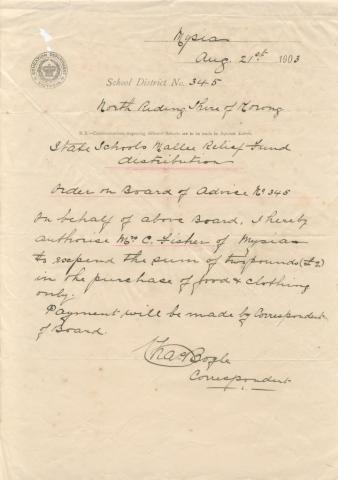 Mysia
Aug. 21st 1903
EDUCATION DEPARTMENT
VICTORIA
School District No. 345
North Riding Shire of Korong
N.B.—Communications respecting different Schools are to be made in Separate Letters.
State Schools Mallee Relief Fund
distribution
Order on Board of Advice No 345
On behalf of above Board, I hereby
authorise Mr C. Fisher of Mysia
to expend the sum of two pounds (£2)
in the purchase of food & clothing
only.
Payment will be made by Correspondent
of Board.
Chas Bogle
Correspondent